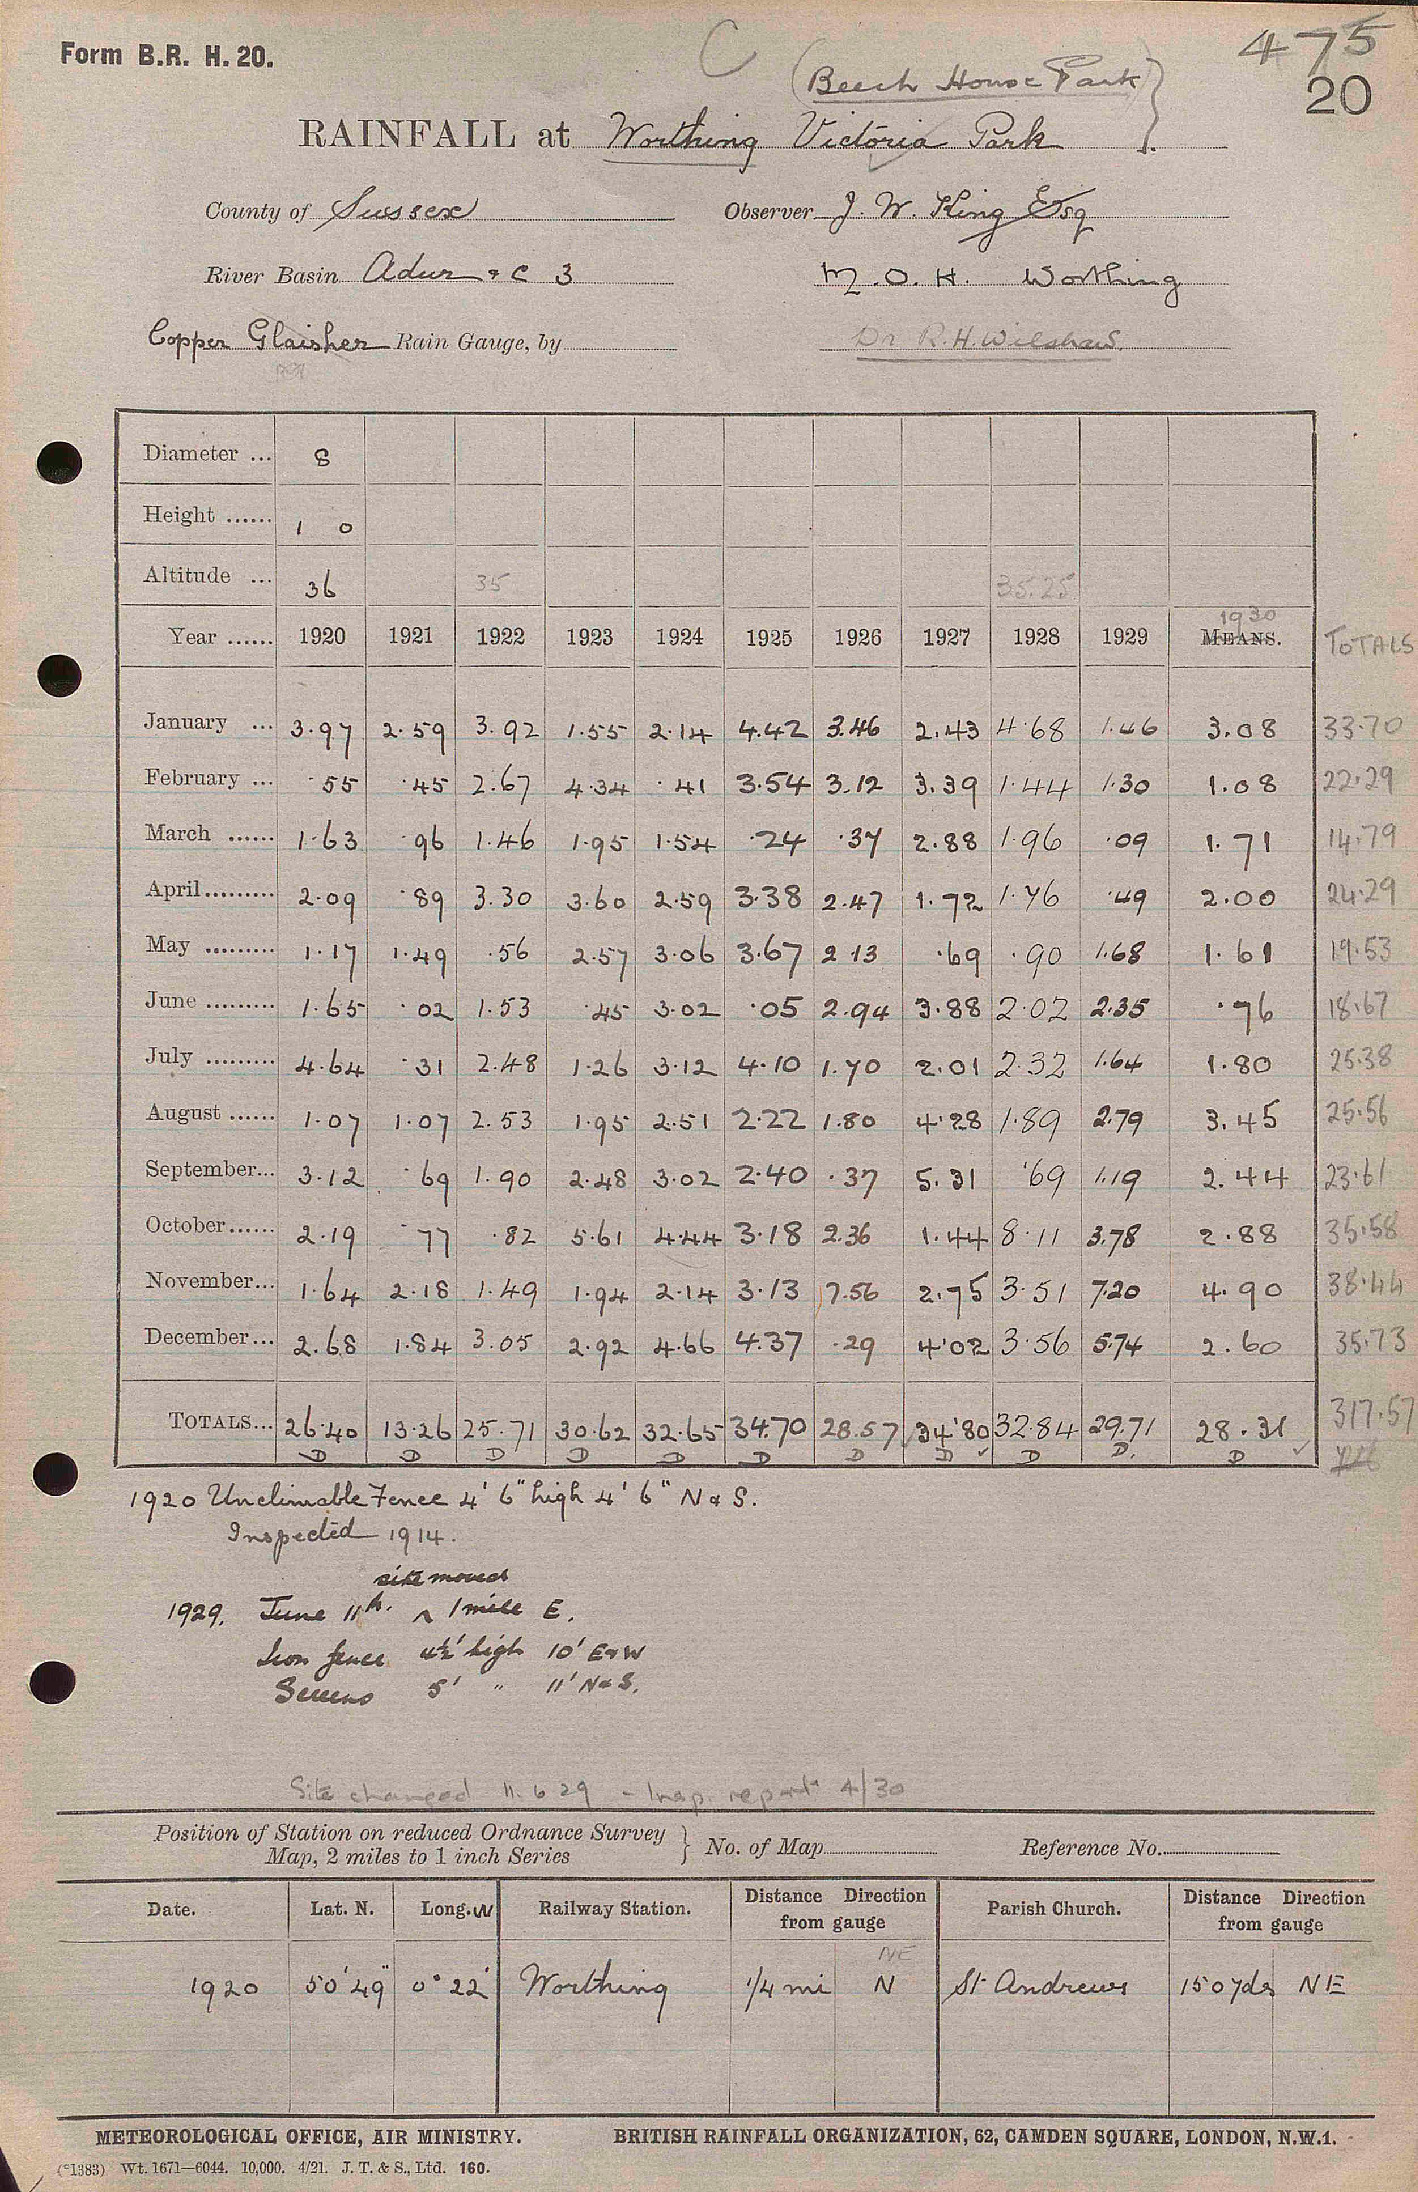 Form B.R. H. 20.
C
475
20
(Beech House Park)
RAINFALL at Worthing Victoria Park
County of Sussex Observer J. W. King Esq
River Basin Adur & C 3 M. O. H. Worthing
Copper Glaisher Rain Gauge, by Dr R. H. Wilshaw.
Diameter ... 8
Height ...... 1 0
Altitude ... 36 35 35.25
Year ...... 1920 1921 1922 1923 1924 1925 1926 1927 1928 1929 1930 MEANS. TOTALS
January ... 3.97 2.59 3.92 1.55 2.14 4.42 3.46 2.43 4.68 1.46 3.08 33.70
February ... .55 .45 2.67 4.34 .41 3.54 3.12 3.39 1.44 1.30 1.08 22.29
March ...... 1.63 .96 1.46 1.95 1.54 .24 .37 2.88 1.96 .09 1.71 14.79
April ......... 2.09 .89 3.30 3.60 2.59 3.38 2.47 1.72 1.76 .49 2.00 24.29
May ......... 1.17 1.49 .56 2.57 3.06 3.67 2 13 .69 .90 1.68 1.61 19.53
June ......... 1.65 .02 1.53 .45 3.02 .05 2.94 3.88 2.02 2.35 .76 18.67
July ......... 4.64 .31 2.48 1.26 3.12 4.10 1.70 2.01 2.32 1.64 1.80 25.38
August ...... 1.07 1.07 2.53 1.95 2.51 2.22 1.80 4.28 1.89 2.79 3.45 25.56
September... 3.12 .69 1.90 2.48 3.02 2.40 .37 5.31 .69 1.19 2.44 23.61
October ...... 2.19 .77 .82 5.61 4.44 3.18 2.36 1.44 8.11 3.78 2.88 35.58
November... 1.64 2.18 1.49 1.94 2.14 3.13 7.56 2.75 3.51 7.20 4.90 38.44
December... 2.68 1.84 3.05 2.92 4.66 4.37 .29 4.02 3.56 5.74 2.60 35.73
TOTALS... 26.40 13.26 25.71 30.62 32.65 34.70 28.57 34.80 32.84 29.71 28.31 317.57
D D D D D D D D D D. D
1920 Unclimable Fence 4' 6" high 4' 6" N & S.
Inspected 1914.
site moved
1929. June 11th. ^ 1 mile E.
Iron fence 4½' high 10' E & W
Screens 5' " 11' N & S.
Site changed 11.6 29 - Insp. report 4/30
Position of Station on reduced Ordnance Survey
Map, 2 miles to 1 inch Series } No. of Map Reference No.
Date. Lat. N. Long. W Railway Station. Distance Direction from gauge Parish Church. Distance Direction from gauge
NE
1920 50' 49" 0° 22' Worthing 1/4 mi N St Andrews 150 yds NE
METEOROLOGICAL OFFICE, AIR MINISTRY. BRITISH RAINFALL ORGANIZATION, 62, CAMDEN SQUARE, LONDON, N.W.1.
(*1383) Wt. 1671—6044. 10,000. 4/21. J. T. & S., Ltd. 160.